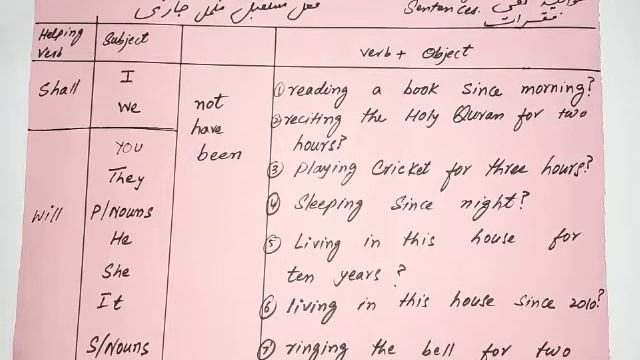 Sentences.
فعل مستقبل مکمل جاری
فقرات
Helping verb
Subject
verb + Object
Shall
I
We
Will
You
They
P/Nouns
He
She
It
S/Nouns
not
have
been
① reading a book since morning?
② reciting the Holy Quran for two
hours?
③ playing Cricket for three hours?
④ Sleeping since night?
⑤ Living in this house for
ten years?
⑥ living in this house since 2010?
⑦ ringing the bell for two